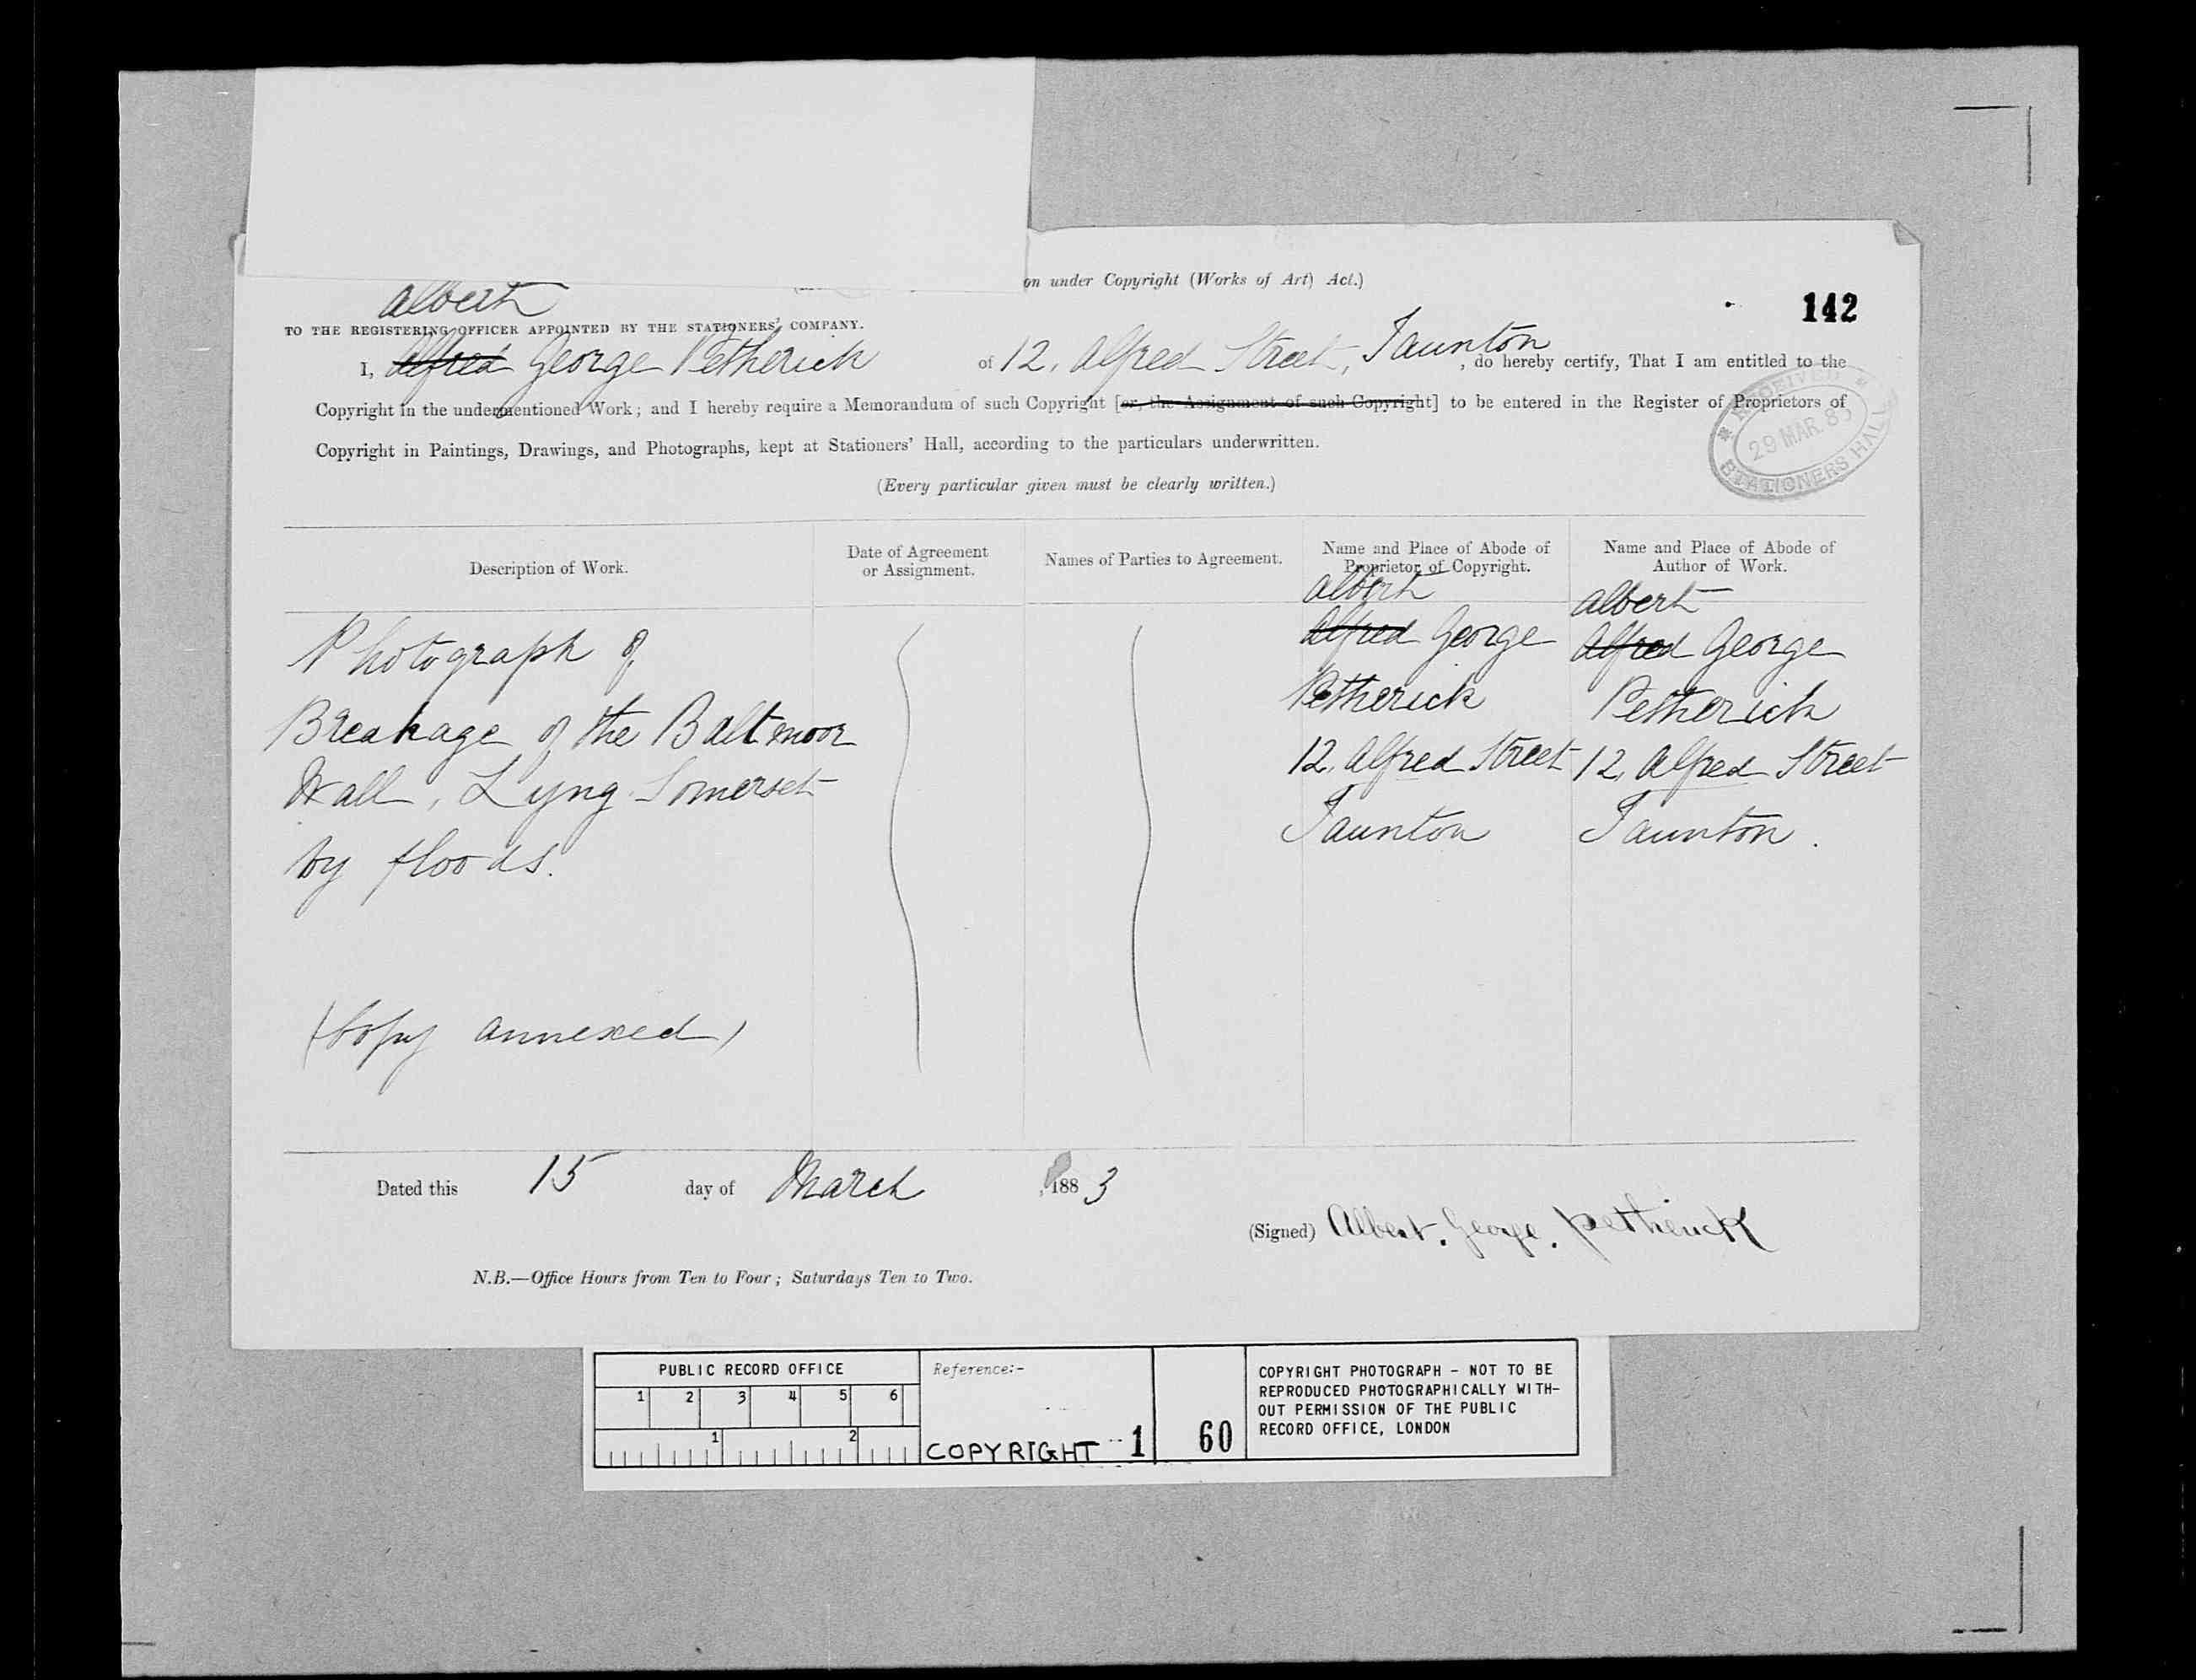 on under Copyright (Works of Art) Act.)
142
Albert
TO THE REGISTERING OFFICER APPOINTED BY THE STATIONERS' COMPANY.
I, Alfred George Petherick of 12, Alfred Street, Taunton, do hereby certify, That I am entitled to the
Copyright in the undermentioned Work; and I hereby require a Memorandum of such Copyright [or, the Assignment of such Copyright] to be entered in the Register of Proprietors of
Copyright in Paintings, Drawings, and Photographs, kept at Stationers' Hall, according to the particulars underwritten.
RECEIVED
29 MAR. 83
STATIONERS HALL
(Every particular given must be clearly written.)
Description of Work.
Date of Agreement
or Assignment.
Names of Parties to Agreement.
Name and Place of Abode of
Proprietor of Copyright.
Name and Place of Abode of
Author of Work.
Photograph of
Breakage of the Baltmoor
Wall, Lyng Somerset
by floods.
(Copy annexed)
Albert
Alfred George
Petherick
12, Alfred Street
Taunton
Albert
Alfred George
Petherick
12, Alfred Street
Taunton.
Dated this 15 day of March, 1883
(Signed) Albert. George. Petherick
N.B.—Office Hours from Ten to Four; Saturdays Ten to Two.
PUBLIC RECORD OFFICE
1 2 3 4 5 6
1 2
Reference:-
COPYRIGHT 1
60
COPYRIGHT PHOTOGRAPH - NOT TO BE
REPRODUCED PHOTOGRAPHICALLY WITH-
OUT PERMISSION OF THE PUBLIC
RECORD OFFICE, LONDON